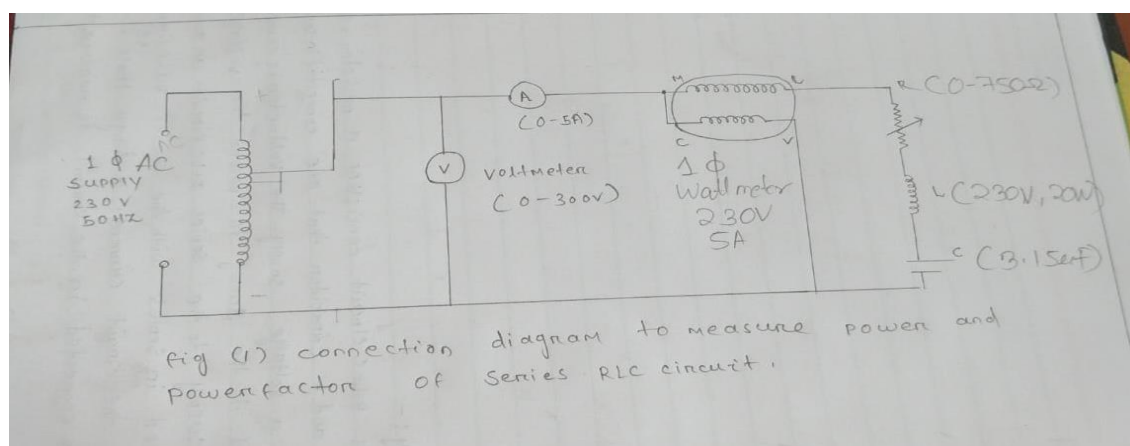 1 ϕ AC
SUPPLY
230 V
50HZ
A
(0-5A)
V
voltmeter
(0-300V)
M
L
C
V
1 ϕ
Wattmeter
230V
5A
R (0-750Ω)
L (230V, 20W)
C (3.15μf)
fig (1) connection diagram to measure power and
powerfactor of series RLC circuit.